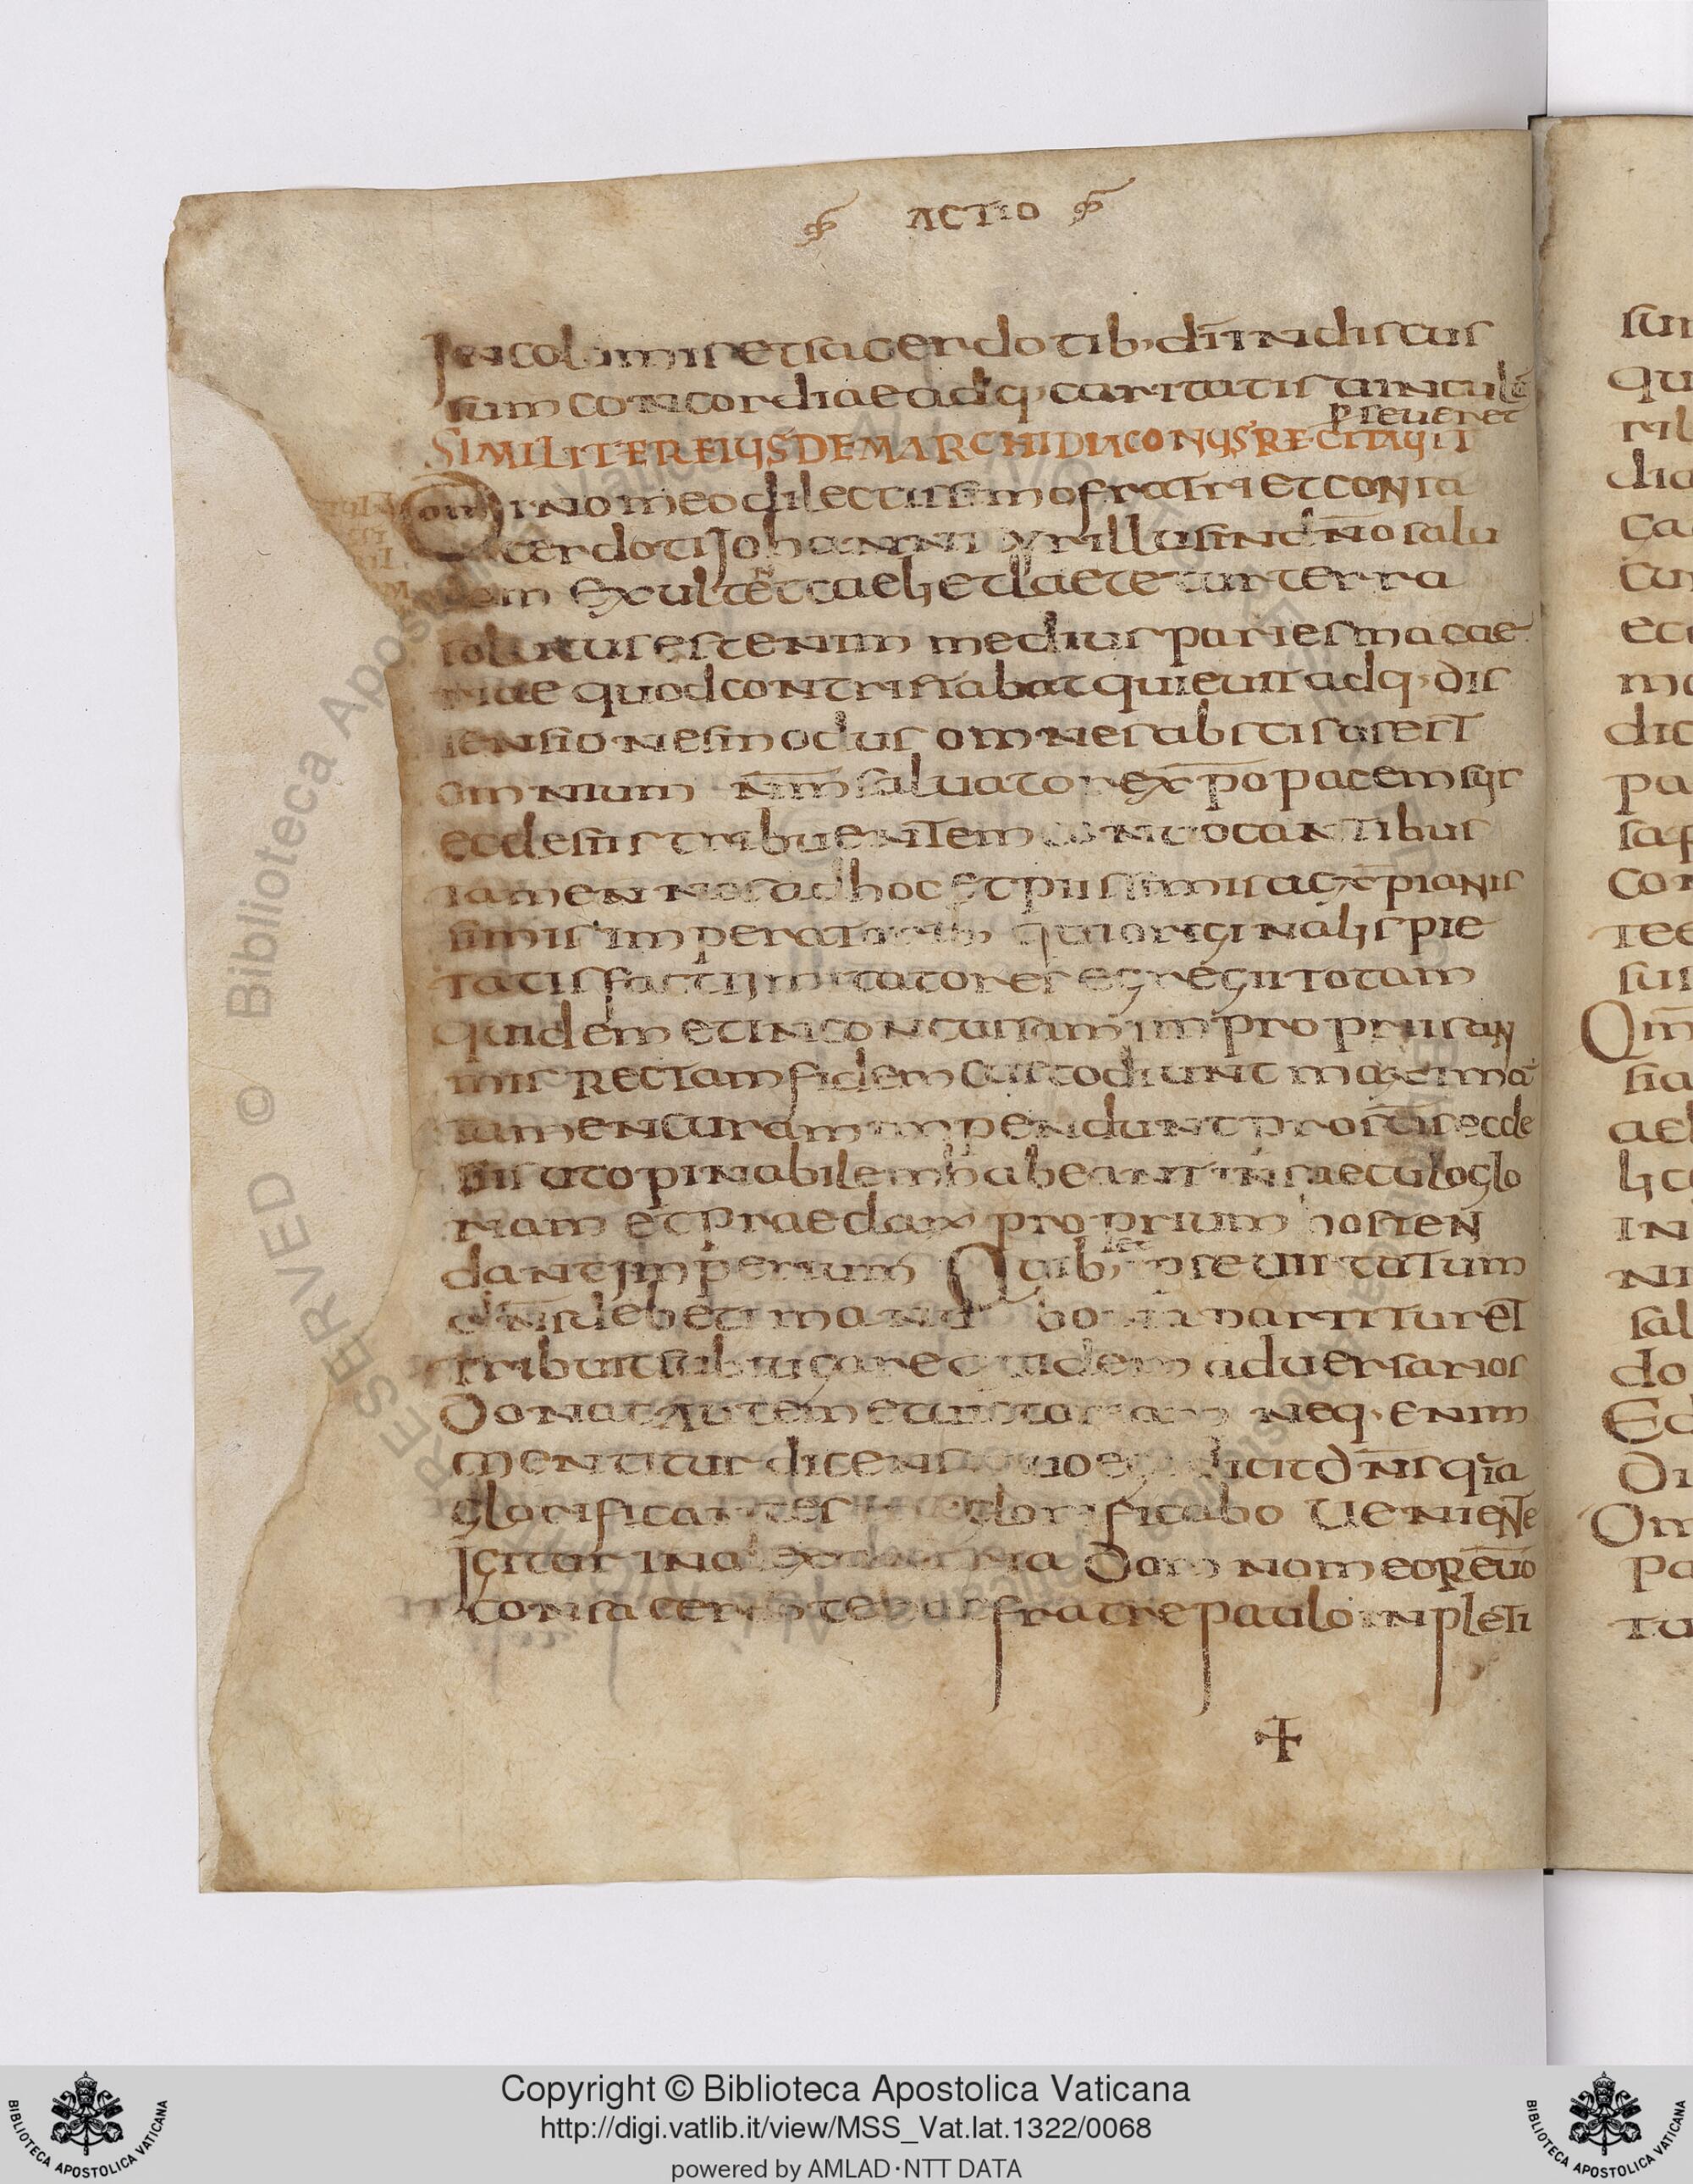 ACTIO
Incolomis et sacerdotib, dī indiscus
sum concordiae adq, caritatis uinculū
pseueret
SIMILITER EIUSDEM ARCHIDIACONUS RECITAUIT
Domino meo dilectissimo fratri et consa
cerdoti Johanni Cyrillus in dn̄o salu
tem Exultent caeli et laetetur terra
solutus est enim medius paries macae
riae quod contristabat quieuit adq, dis
sensionesmodus omnes abscisas est
omnium nm̄ saluatore xp̄o pacem suis
ecclesiis tribuentem conuocantibus
tamen nos ad hoc et piissimis ac xp̄ianis
simis imperatorib, qui originalis pie
tatis facti imitatores egregii totam
quidem et inconcussam in propriis an
imis rectam fidem custodiunt maximā
tamen curam impendunt pro sc̄is eccle
siis ut opinabilem habeant in saeculo glo
riam et praeclarum proprium hosten
dant imperium Quib, ipse uirtutum
dn̄s debeti manu bona partitur et
tribuit subiugare quidem aduersarios
Donat autem et uictoriam neq, enim
mentitur dicens uiuo ego dicit dn̄s qīa
glorificantes me glorificabo Ueniente
Igitur in alexandria Domno meo reuō
consacerdote et fratre paulo inpleti
Copyright © Biblioteca Apostolica Vaticana
http://digi.vatlib.it/view/MSS_Vat.lat.1322/0068
powered by AMLAD·NTT DATA
BIBLIOTECA APOSTOLICA VATICANA
BIBLIOTECA APOSTOLICA VATICANA